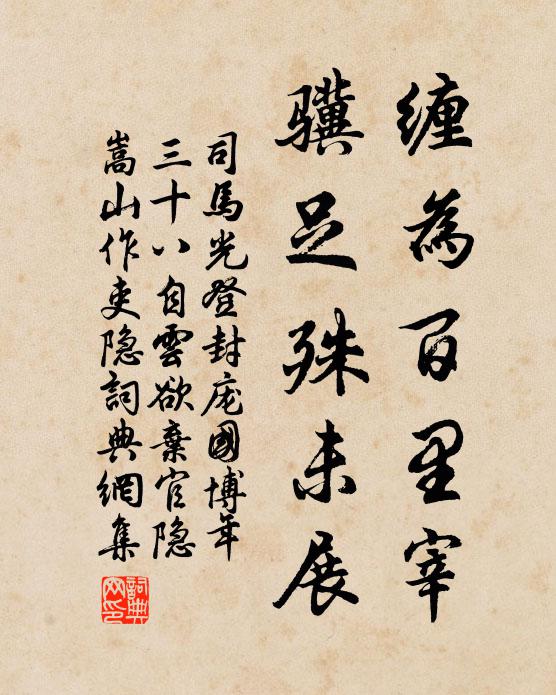 纏為百里宰
驥足殊未展
司馬光登封庞國博年
三十八自雲欲棄官隐
嵩山作吏隐詞典網集
詞典
网印